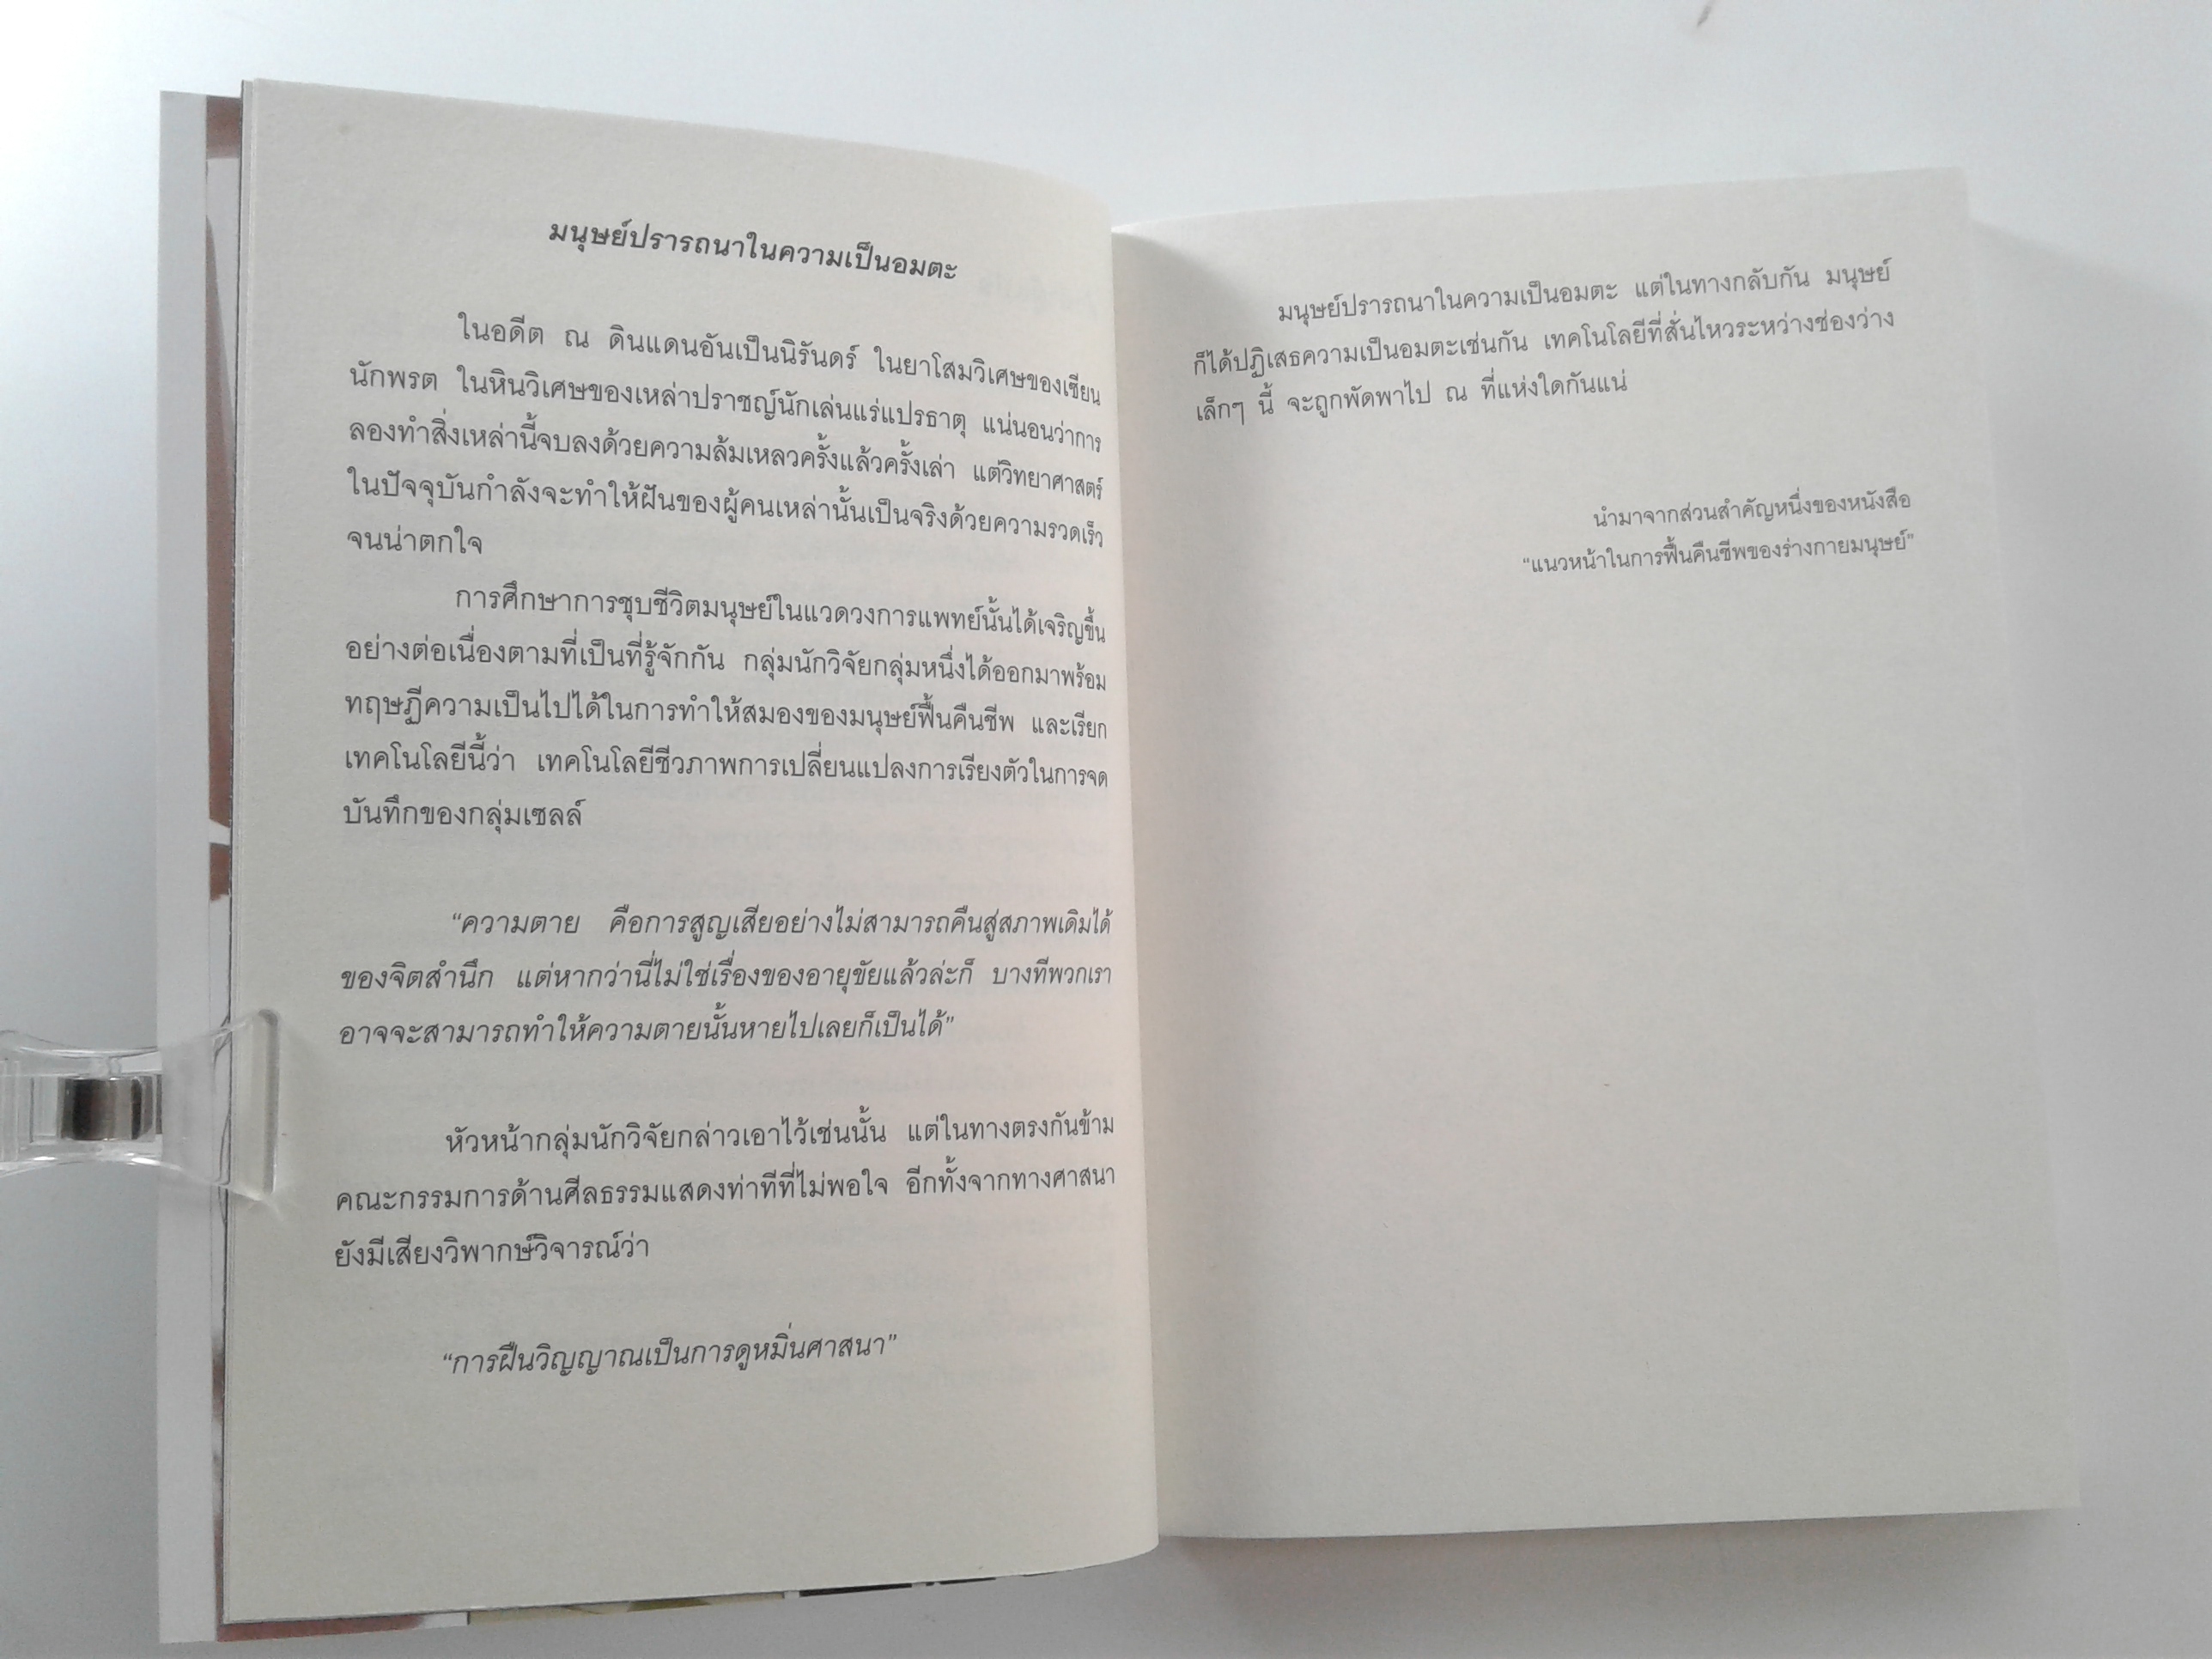 มนุษย์ปรารถนาในความเป็นอมตะ
ในอดีต ณ ดินแดนอันเป็นนิรันดร์ ในยาโสมวิเศษของเซียน
นักพรต ในหินวิเศษของเหล่าปราชญ์นักเล่นแร่แปรธาตุ แน่นอนว่าการ
ลองทำสิ่งเหล่านี้จบลงด้วยความล้มเหลวครั้งแล้วครั้งเล่า แต่วิทยาศาสตร์
ในปัจจุบันกำลังจะทำให้ฝันของผู้คนเหล่านั้นเป็นจริงด้วยความรวดเร็ว
จนน่าตกใจ
การศึกษาการชุบชีวิตมนุษย์ในแวดวงการแพทย์นั้นได้เจริญขึ้น
อย่างต่อเนื่องตามที่เป็นที่รู้จักกัน กลุ่มนักวิจัยกลุ่มหนึ่งได้ออกมาพร้อม
ทฤษฎีความเป็นไปได้ในการทำให้สมองของมนุษย์ฟื้นคืนชีพ และเรียก
เทคโนโลยีนี้ว่า เทคโนโลยีชีวภาพการเปลี่ยนแปลงการเรียงตัวในการจด
บันทึกของกลุ่มเซลล์
“ความตาย คือการสูญเสียอย่างไม่สามารถคืนสู่สภาพเดิมได้
ของจิตสำนึก แต่หากว่านี่ไม่ใช่เรื่องของอายุขัยแล้วล่ะก็ บางทีพวกเรา
อาจจะสามารถทำให้ความตายนั้นหายไปเลยก็เป็นได้”
หัวหน้ากลุ่มนักวิจัยกล่าวเอาไว้เช่นนั้น แต่ในทางตรงกันข้าม
คณะกรรมการด้านศีลธรรมแสดงท่าทีที่ไม่พอใจ อีกทั้งจากทางศาสนา
ยังมีเสียงวิพากษ์วิจารณ์ว่า
“การฝืนวิญญาณเป็นการดูหมิ่นศาสนา”
มนุษย์ปรารถนาในความเป็นอมตะ แต่ในทางกลับกัน มนุษย์
ก็ได้ปฏิเสธความเป็นอมตะเช่นกัน เทคโนโลยีที่สั่นไหวระหว่างช่องว่าง
เล็กๆ นี้ จะถูกพัดพาไป ณ ที่แห่งใดกันแน่
นำมาจากส่วนสำคัญหนึ่งของหนังสือ
“แนวหน้าในการฟื้นคืนชีพของร่างกายมนุษย์”